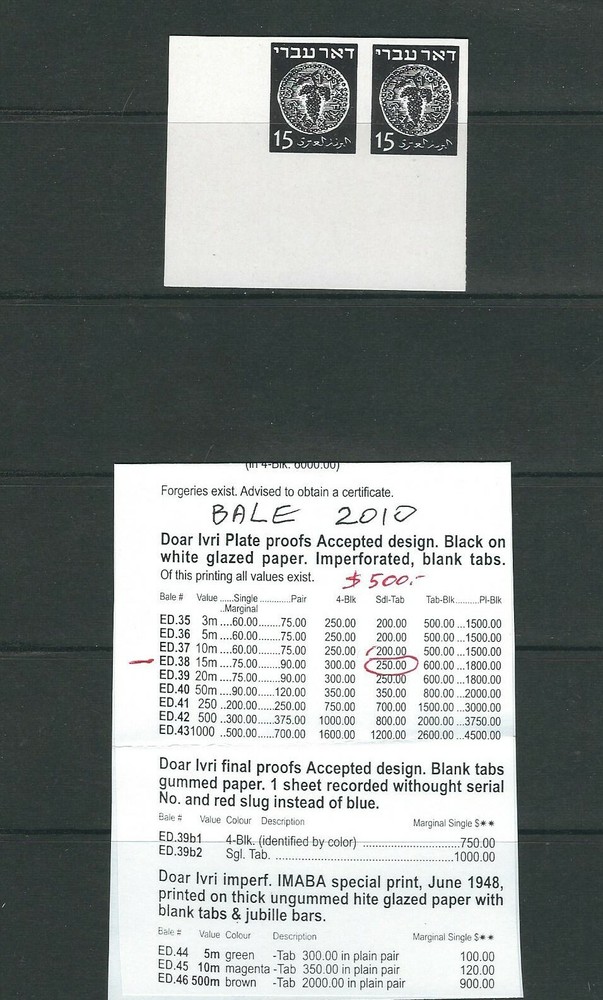 דאר עברי דאר עברי
15 15
(in 4-Blk. 6000.00)
Forgeries exist. Advised to obtain a certificate.
BALE 2010
Doar Ivri Plate proofs Accepted design. Black on
white glazed paper. Imperforated, blank tabs.
Of this printing all values exist. $500.-
Bale # Value ......Single ............Pair 4-Blk Sdl-Tab Tab-Blk.........Pl-Blk
..Marginal
ED.35 3m ....60.00.......75.00 250.00 200.00 500.00 ...1500.00
ED.36 5m ....60.00.......75.00 250.00 200.00 500.00 ...1500.00
ED.37 10m ....60.00.......75.00 250.00 200.00 500.00 ...1500.00
ED.38 15m ....75.00.......90.00 300.00 250.00 600.00 ...1800.00
ED.39 20m ....75.00.......90.00 300.00 250.00 600.00 ...1800.00
ED.40 50m ....90.00.....120.00 350.00 350.00 800.00 ...2000.00
ED.41 250 ..200.00.....250.00 750.00 700.00 1500.00 ...3000.00
ED.42 500 ..300.00.....375.00 1000.00 800.00 2000.00 ...3750.00
ED.431000 ..500.00......700.00 1600.00 1200.00 2600.00 ...4500.00
Doar Ivri final proofs Accepted design. Blank tabs
gummed paper. 1 sheet recorded withought serial
No. and red slug instead of blue.
Bale # Value Colour Description Marginal Single $✶✶
ED.39b1 4-Blk. (identified by color) ............................750.00
ED.39b2 Sgl. Tab. ..................................................1000.00
Doar Ivri imperf. IMABA special print, June 1948,
printed on thick ungummed hite glazed paper with
blank tabs & jubille bars.
Bale # Value Colour Description Marginal Single $✶✶
ED.44 5m green -Tab 300.00 in plain pair 100.00
ED.45 10m magenta -Tab 350.00 in plain pair 120.00
ED.46 500m brown -Tab 2000.00 in plain pair 900.00